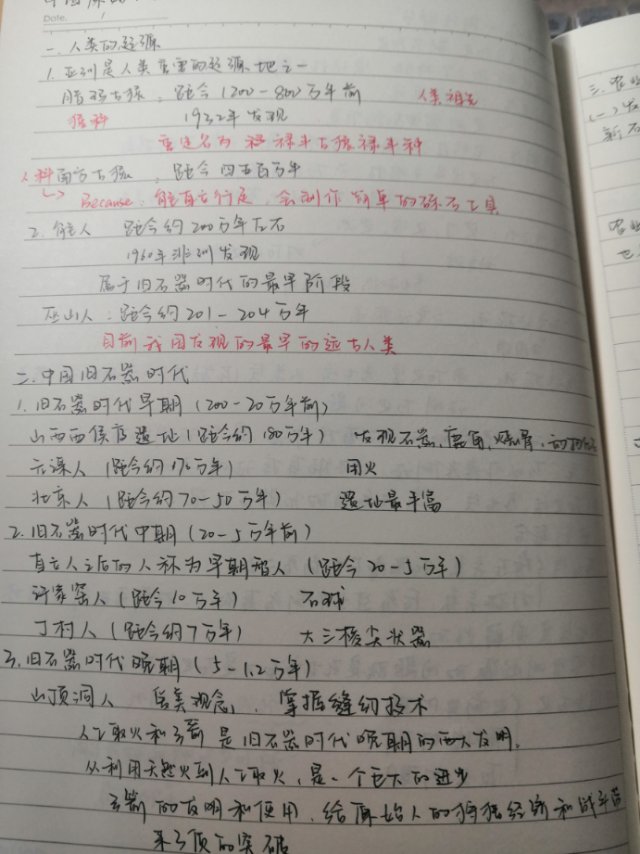 Date.
一、人类的起源
1. 亚洲是人类重要的起源地之一
腊玛古猿：距今1200-800万年前 人类祖先
猿科 1932年发现
重定名为 禄丰古猿禄丰种
人科南方古猿：距今四五百万年
Because：能直立行走，会制作简单的砾石工具
2. 能人 距今约200万年左右
1960年非洲发现
属于旧石器时代的最早阶段
巫山人：距今约201-204万年
目前我国发现的最早的远古人类
二.中国旧石器时代
1.旧石器时代早期（200-20万年前）
山西西侯度遗址（距今约180万年） 发现石器、鹿角、烧骨、动物化石
元谋人（距今约170万年） 用火
北京人（距今约70-50万年） 遗址最丰富
2.旧石器时代中期（20-5万年前）
直立人之后的人称为早期智人（距今20-5万年）
许家窑人（距今10万年） 石球
丁村人（距今约7万年） 大三棱尖状器
3.旧石器时代晚期（5-1.2万年）
山顶洞人 审美观念，掌握缝纫技术
人工取火和弓箭是旧石器时代晚期的两大发明。
从利用天然火到人工取火，是一个巨大的进步
弓箭的发明和使用，给原始人的狩猎经济和战斗
来了顶的突破
三.农
（一）发
新石
农业